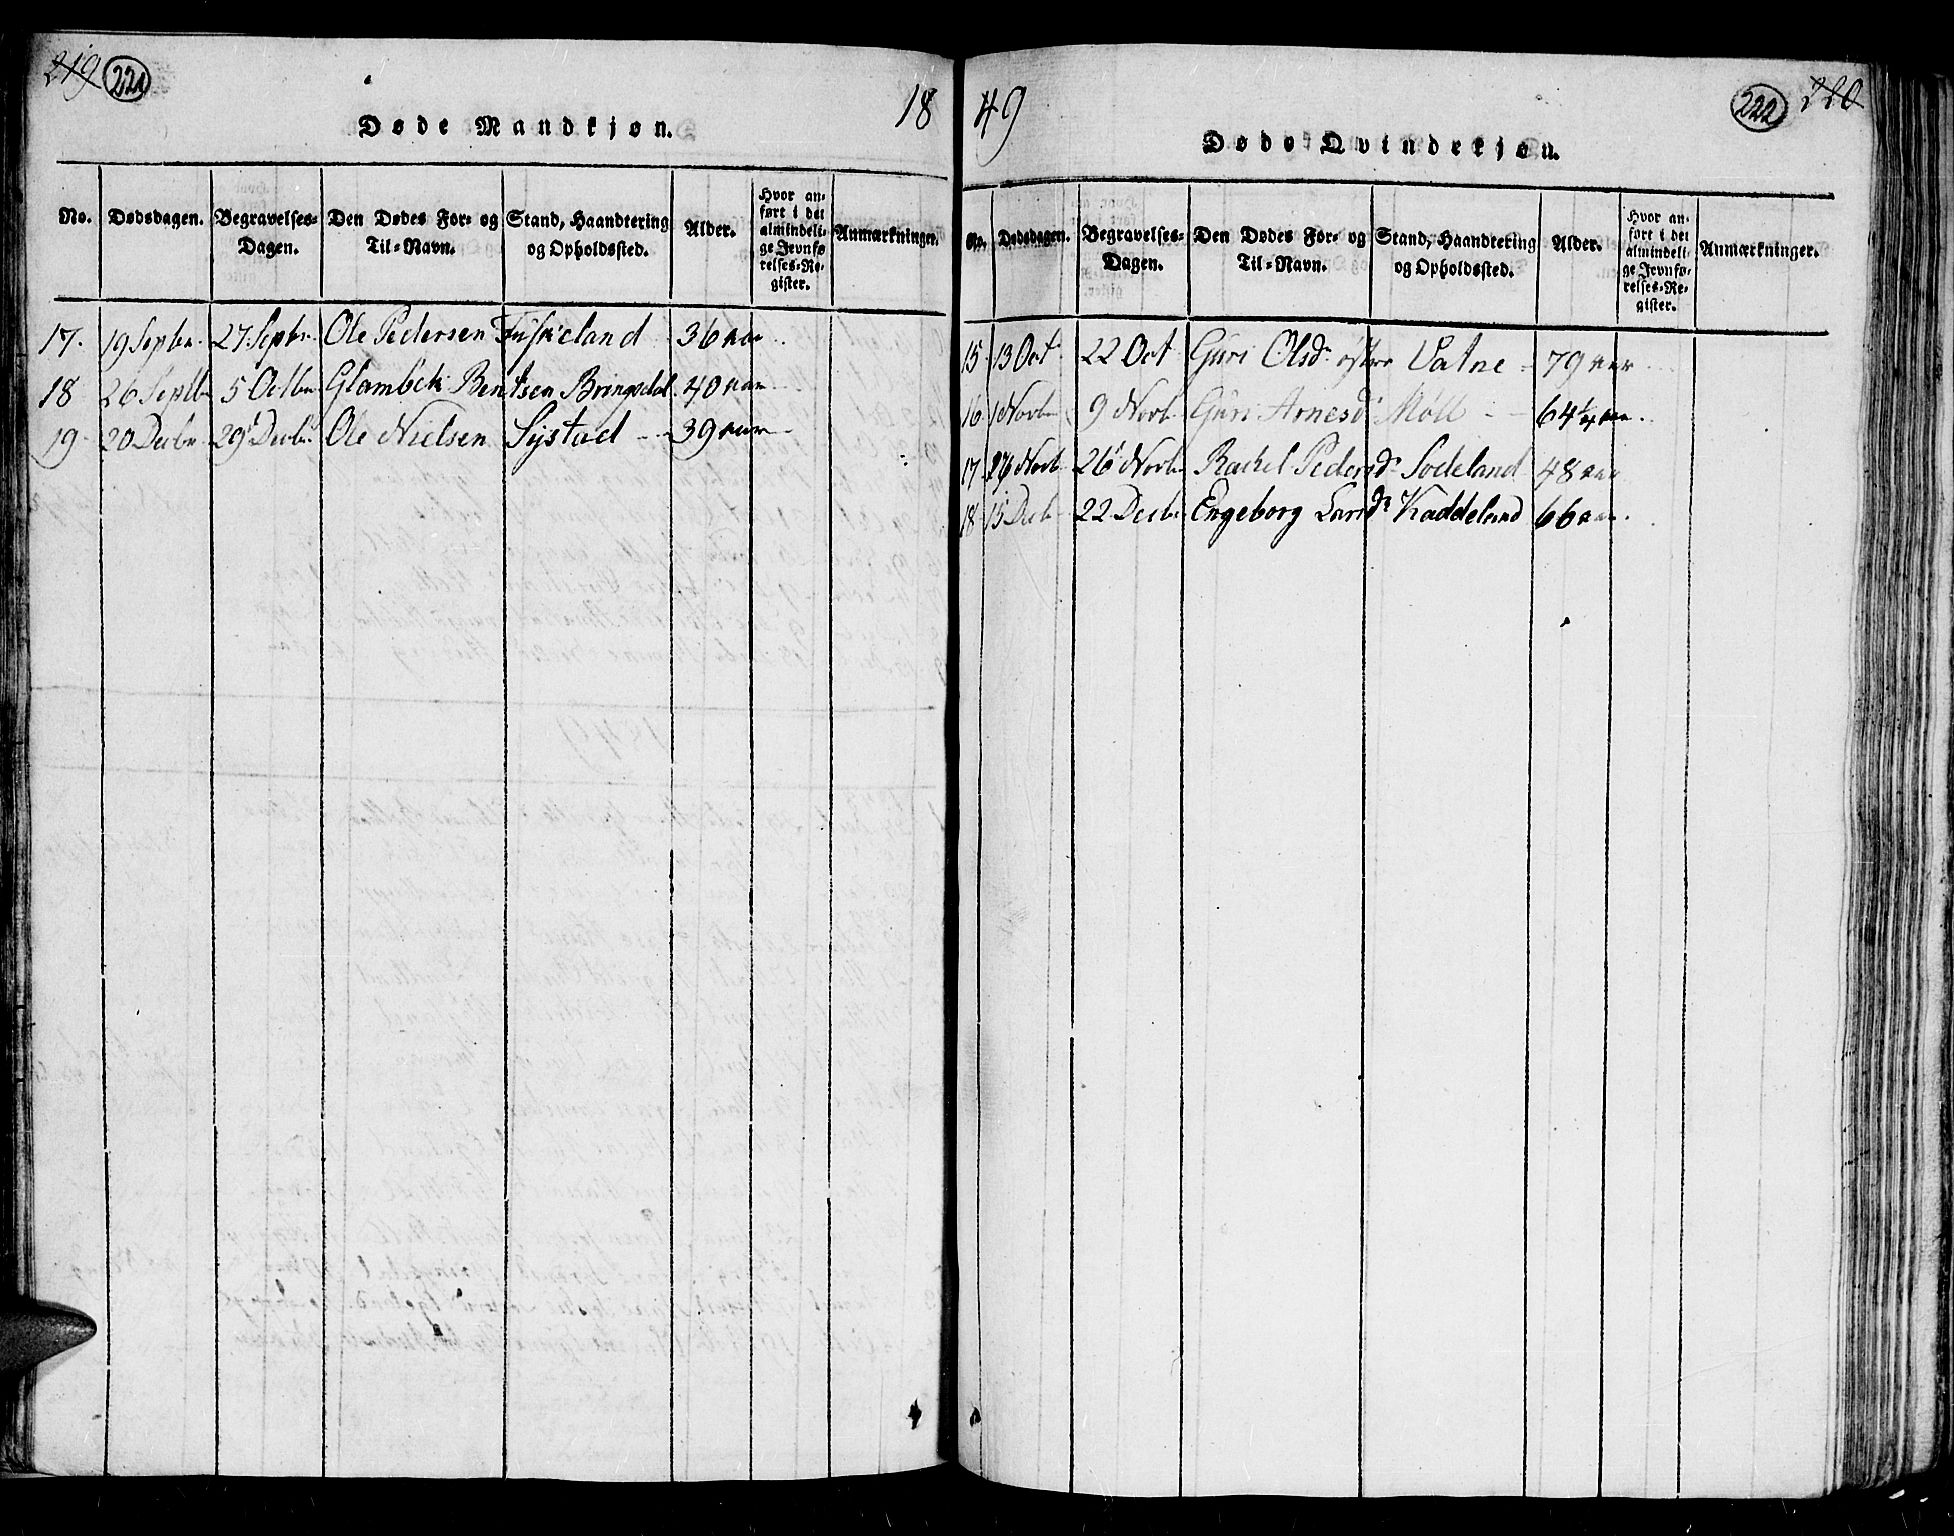 219 221
Døde Mandkjøn.
18
No. Dødsdagen. Begravelses-Dagen. Den Dødes For- og Til-Navn. Stand, Haandtering og Opholdssted. Alder. Hvor anført i det almindelige Jevnførelses-Register. Anmærkninger.
17. 19 Septbr. 27 Septbr. Ole Pedersen Fuskeland 36 aar
18 26 Septbr 5 Octbr Glambek Bentsen Bringsdal 40 aar
19 20 Decbr 29 Decbr Ole Nielsen Sijstad 39 aar
49
222 220
Døde Qvindekjøn.
No. Dødsdagen. Begravelses-Dagen. Den Dødes For- og Til-Navn. Stand, Haandtering og Opholdssted. Alder. Hvor anført i det almindelige Jevnførelses-Register. Anmærkninger.
15 13 Oct. 22 Oct Guri Olsdr østre Vatne 79 aar
16 1 Novbr 9 Novbr Guri Arnesdr Møll 64 1/4 aar
17 Novbr 26 Novbr Rachel Pedersdr Sodeland 48 aar
18 15 Decbr 22 Decbr Engeborg Larsdr Kaddeland 66 aar